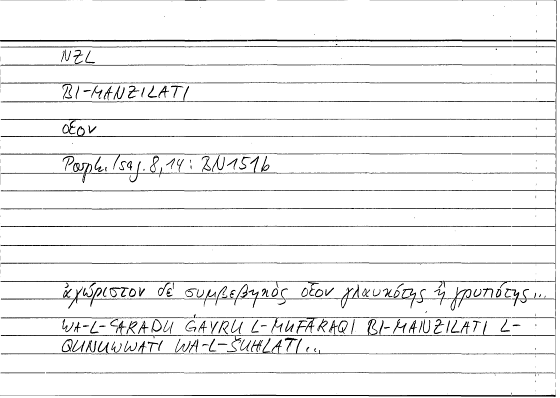 NZL
BI-MANZILATI
οἷον
Porph. Isag. 8,14: BN151b
ἀχώριστον δὲ συμβεβηκὸς οἷον γλαυκότης ἢ γρυπότης...
WA-L-ʿARAḌU ĠAYRU L-MUFĀRAQI BI-MANZILATI L-
QUNUWWATI WA-L-ŠUHLATI...